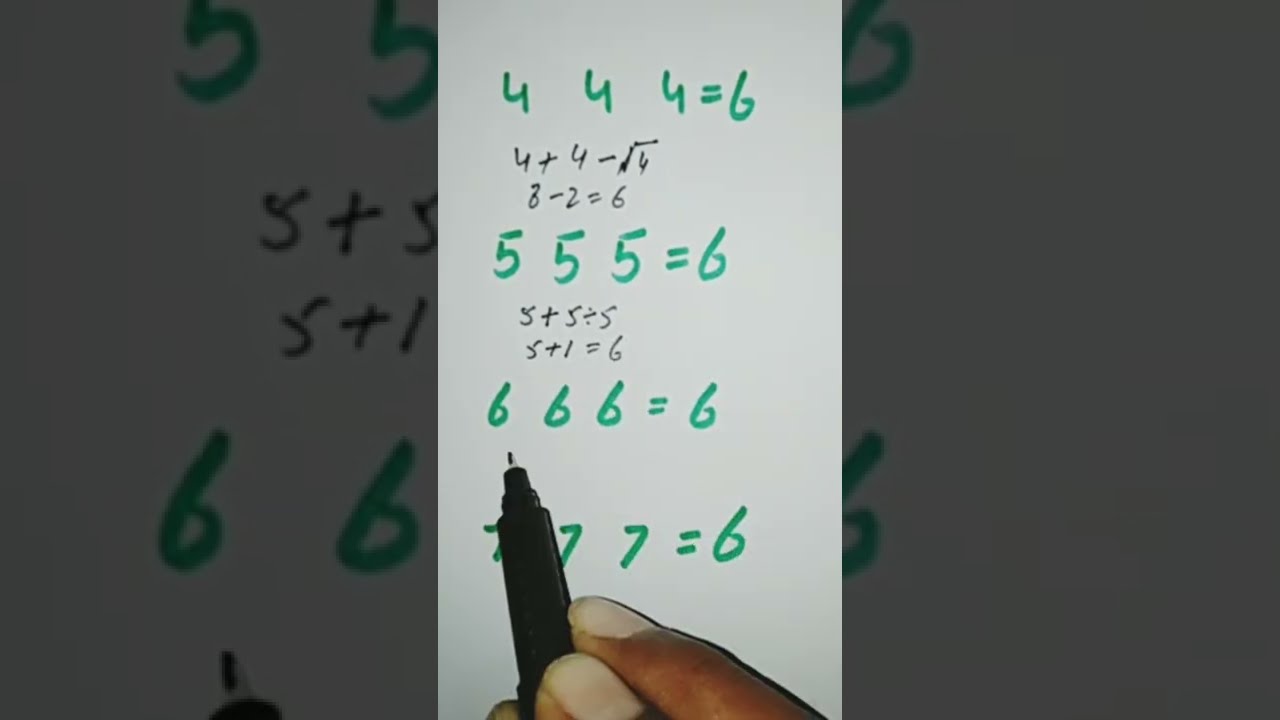 4 4 4 = 6
4 + 4 - √4
8 - 2 = 6
5 5 5 = 6
5 + 5 ÷ 5
5 + 1 = 6
6 6 6 = 6
7 7 7 = 6